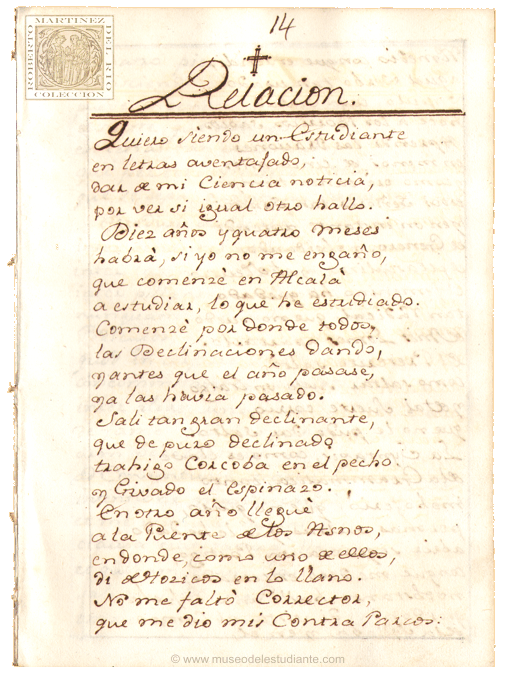 ROBERTO MARTINEZ DEL RIO
COLECCION
14
Relacion.
Quiero siendo un Estudiante
en letras aventajado,
dar de mi Ciencia noticia,
por ver si igual otro hallo.
Diez años y quatro meses
habrà, si yo no me engaño,
que comenzè en Alcalà
a estudiar, lo que he estudiado.
Comenzè por donde todos,
las Declinaciones dando,
y antes que el año pasase,
ya las havia pasado.
Sali tan gran declinante,
que de puro declinado
trahigo Corcoba en el pecho
y Givado el Espinazo.
En otro año lleguè
a la Puente de los Asnos,
en donde, como uno de ellos,
di de Hozicos en lo llano.
No me faltò Corrector,
que me dio mis Contra
© www.museodelestudiante.com